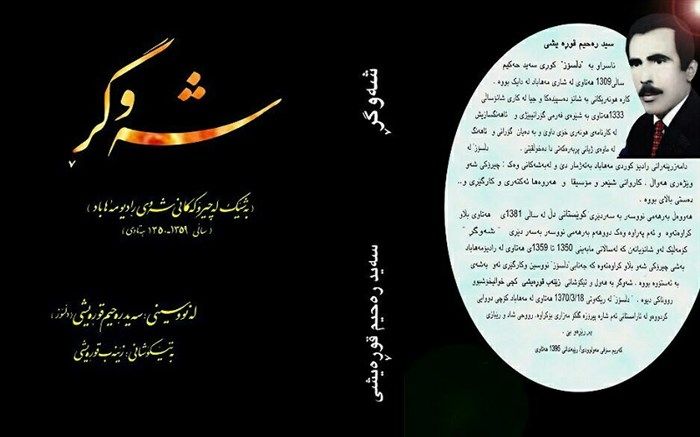 شەوگڕ
(بەشێک لە چیرۆکەکانی شەوی رادیۆ مەهاباد)
(ساڵی ١٣٥٩-١٣٥٠ هەتاوی)
لە نووسینی: سەید رەحیم قورەیشی (دڵسۆز)
بە تێکۆشانی: زێنەب قورەیشی
شەوگڕ
سەید رەحیم قورەیشی
سید رەحیم قورە یشی
ناسراو بە "دڵسۆز" کوری سەید حەکیم
ساڵی 1309 هەتاوی لە شاری مەهاباد لە دایک بووە .
کارە هونەریکانی بە شانۆ دەسپێدەکا و جیا لە کاری شانۆساڵی
1333 هەتاوی بە شێوەی فەرمی گۆرانیبێژی و ئاهەنگسازیش
لە کارنامەی هونەری خۆی داوێ و بە دەیان گۆرانی و ئاهەنگ
لە ماوەی ژیانی پڕبەرەکەتی دا دەخوڵقێنێ . "دڵسۆز" لە
دامەزرێنەرانی رادیۆ کوردی مەهاباد بەئەژمار دێ و لەبەشەکانی وەک : چیرۆکی شەو
وێژەری هەواڵ ، کاروانی شێعر و مۆسیقا و هەروەها ئەکتەری و کارگێری و..
دەستی باڵای بووە .
هەوەڵ بەرهەمی نووسەر بە سەردێری کوێستانی دڵ لە ساڵی 1381ی هەتاوی بڵاو
کراوەتەوە و ئەم پەراوە وەک دووهەم بەرهەمی نووسەر بەسەر دێری "شەوگڕ"
کۆمەڵێک لەو شانۆیانەن کە لەساڵانی مابەینی 1350 تا 1359ی هەتاوی لە رادیۆمەهاباد
بەشی چیرۆکی شەو بڵاو کراوەتەوە کە جەنابی"دڵسۆز" نووسین وکارگێری ئەو بەشەی
بە ئەستۆوە بووە . شەوگڕ بە هەوڵ و تێکۆشانی زێنەب قورەیشی کچی خوالێخۆشبوو
رووناکی دیوە . "دڵسۆز" لە رێکەوتی 1370/3/18 هەتاوی لە مەهاباد کۆچی دووایی
کردووەو لە ئارامستانی ئەم شارە پیرۆزە گڵکۆ مەزاری بۆکراوە. رووحی شاد و رێبازی
پڕ رێبوار بێ .
کەریم سۆفی مەولوودی/ رێبەندانی 1395 هەتاوی